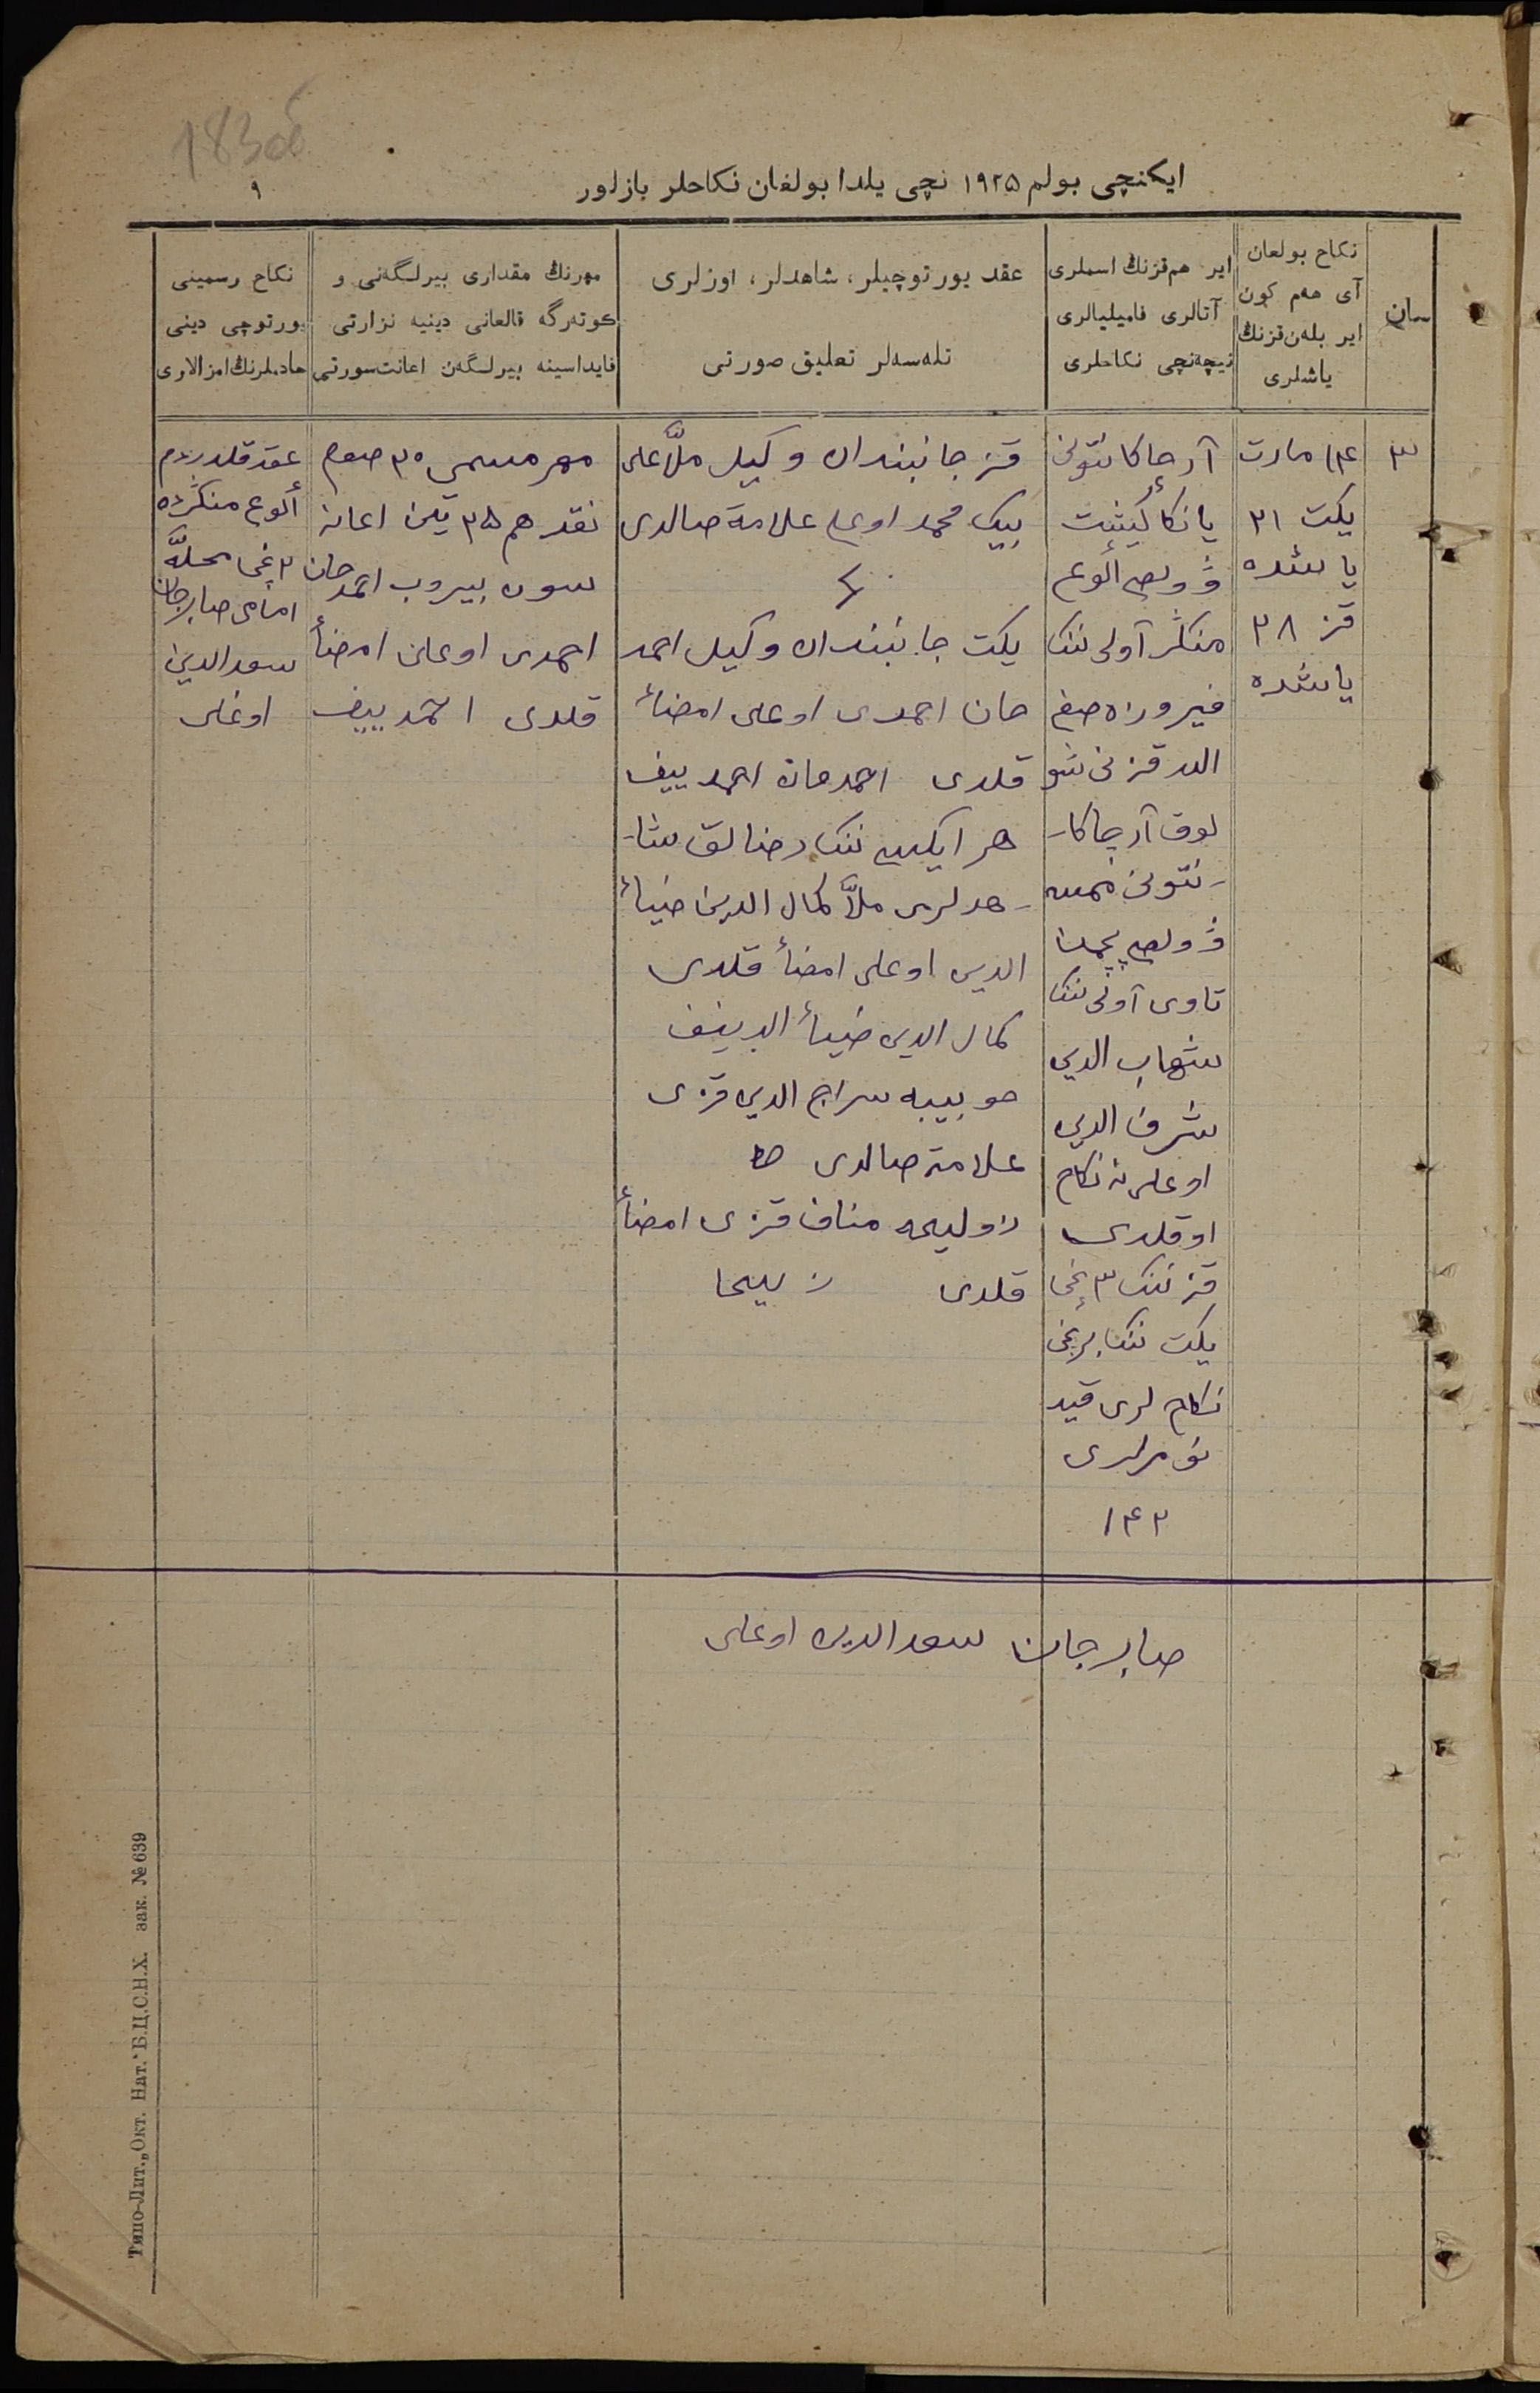 183об
۹
ایکنچی بولم ۱۹۲۵ نچی یلدا بولغان نکاحلر یازلور
سان
نکاح بولغان
آی هەم کون
ایر بلەن قزنڭ
یاشلری
ایر هم قزنڭ اسملری
آتالری فامیلیالری
نیچەنچی نکاحلری
عقد یورتوچیلر، شاهدلر، اوزلری
تلەسەلر تعلیق صورتی
مهرنڭ مقداری بیرلگەنی و
کوتەرگە قالعانی دینیه نزارتی
فایداسینه بیرلگەن اعانت سورتی
نکاح رسمینی
یورتوچی دینی
خادملرنڭ امزالاری
۳
۱۴ مارت
یکت ۳۱
یاشده
قز ۳۸
یاشده
آرجا کانتونی
یاڭا کیشیت
وولصی ألوع
منگر آولی ننک
فیروزه صفی
الله قزنی شو
لوق آرجا کا-
-نتونی
وولصی
تاوی آولی ننک
شهاب الدین
شرف الدین
اوعلینه نکاح
اوقلدی
قز ننک ۳ نچی
یکت ننک برنچی
نکاح لری قید
نومرلری
۱۴۲
قز جانبندان وکیل ملّا علی
بیک محمد اوعلی علامة صالدی
یکت جانبندان وکیل احمد
جان احمدی اوعلی امضأ
قلدی احمدجان احمدییف
هر ایکیسی ننک رضالق شا-
-هدلری ملّا کمال الدین ضیأ
الدین اوعلی امضأ قلدی
کمال الدین ضیأ الدینف
حوبیبه سراج الدین قزی
علامة صالدی
زولیحه مناف قزی امضأ
قلدی زلیحا
مهر مسمی ۳۰ صوم
نقد هم ۳۵ تین اعانه
سون بیروب احمدجان
احمدی اوعلی امضأ
قلدی احمدییف
عقد قلدردم
ألوع منگرده
۲ نچی محلّه
امامی صابرجان
سعدالدین
اوغلی
صابرجان سعدالدین اوعلی
Типо-Лит. „Окт. Нат.“ Б.Ц.С.Н.Х. зак. № 639